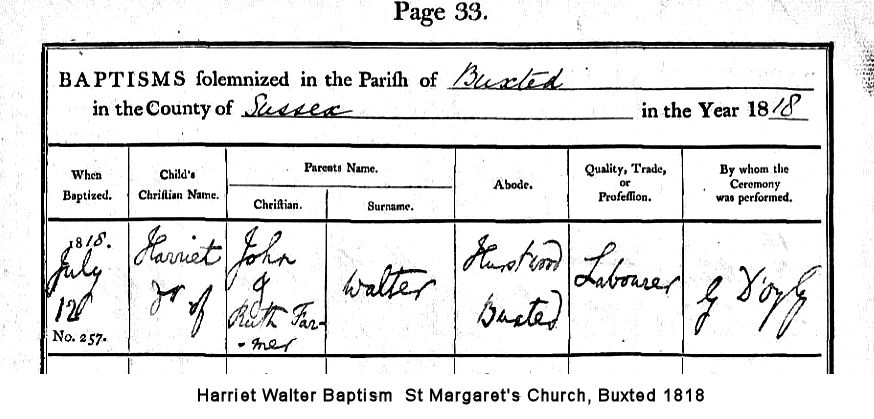 Page 33.
BAPTISMS solemnized in the Parish of Buxted
in the County of Sussex in the Year 1818
When
Baptized.
Child's
Christian Name.
Parents Name.
Christian.
Surname.
Abode.
Quality, Trade,
or
Profession.
By whom the
Ceremony
was performed.
1818.
July
12
No. 257.
Harriet
Dr of
John
&
Ruth Far-
-mer
Walter
Hurstwood
Buxted
Labourer
G D'oyly
Harriet Walter Baptism St Margaret's Church, Buxted 1818